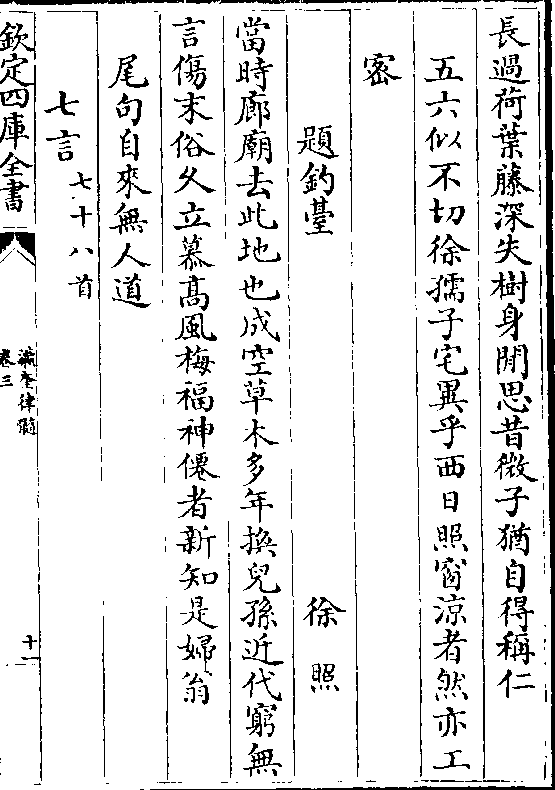 長過荷葉藤深失樹身閒思昔微子猶自得稱仁
五六似不切徐孺子宅異乎西日照窗涼者然亦工
宻
題釣臺 徐照
當時廊廟去此地也成空草木多年換兒孫近代窮無
言傷末俗久立慕髙風梅福神僊者新知是婦翁
尾句自來無人道
七言 七十八首
欽定四庫全書
瀛奎律髓
卷三
十一